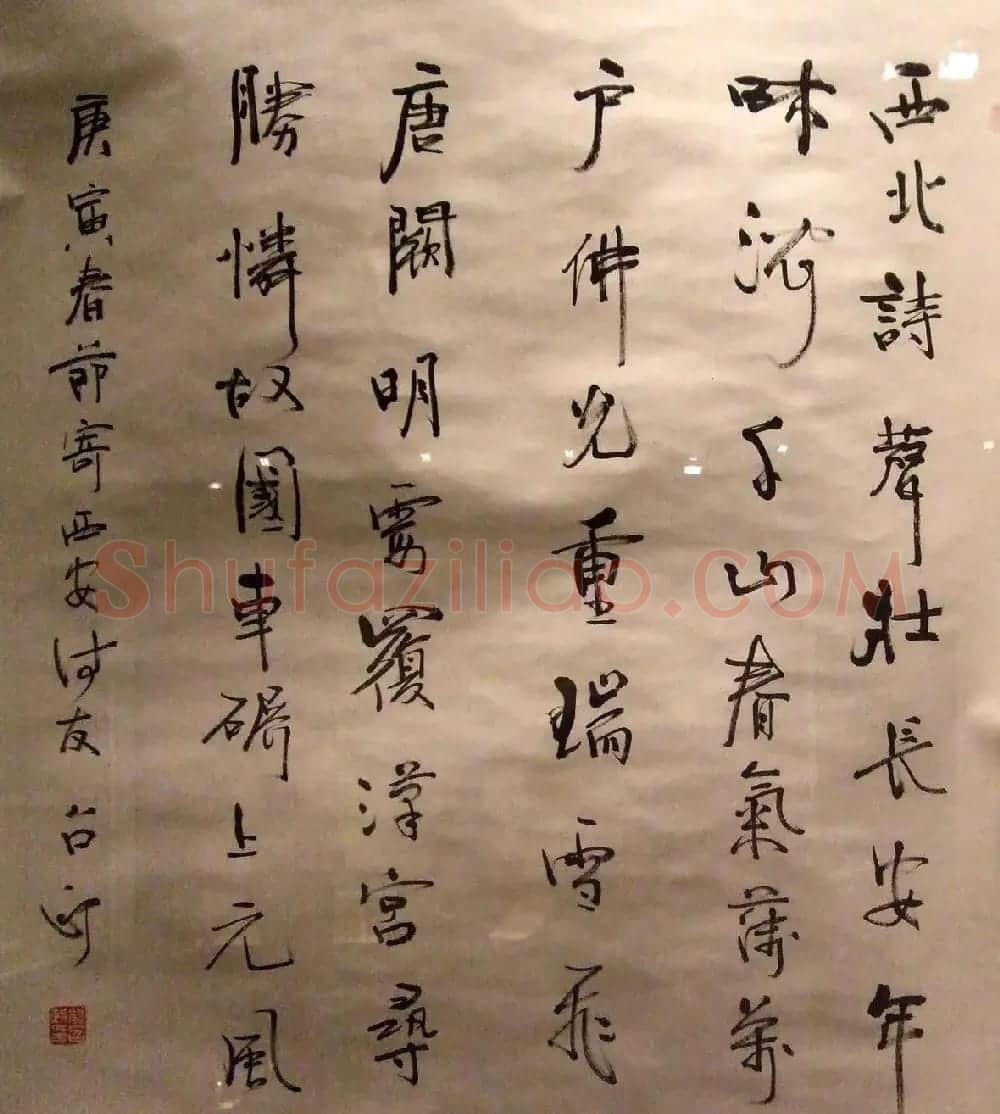 西北詩聲壯長安年
味濃千山春氣蒲萬
户佛光重瑞雪飛
唐闕明霞覆漢宮尋
勝憐故國車碾上元風
庚寅春節寄西安詩友
Shufaziliao.COM